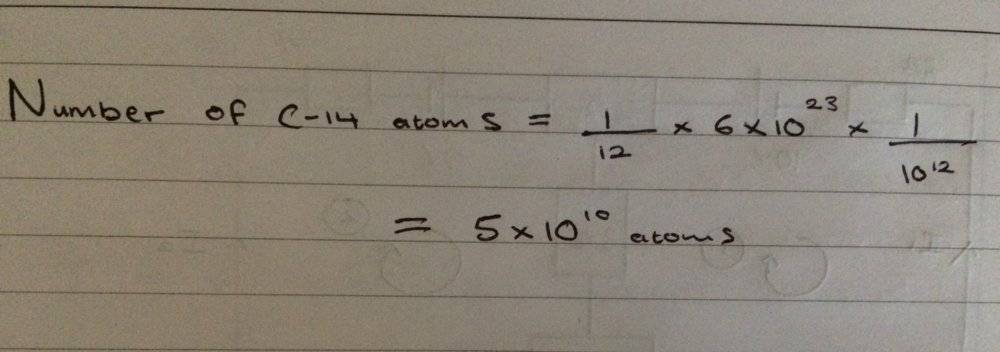 Number of C-14 atoms = 1/12 × 6×10²³ × 1/10¹²
= 5×10¹⁰ atoms